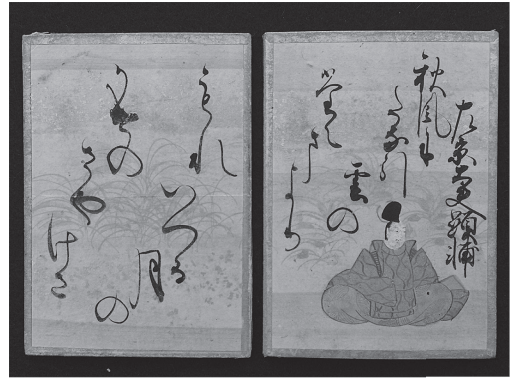 左京大夫顕輔
秋風に
たなひく
雲の
たえ
まより
もれ
いつる
月
の
かけの
さや
けさ